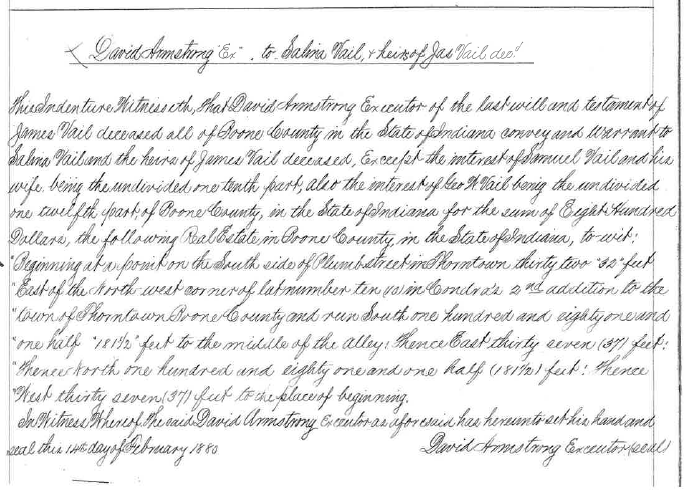 David Armstrong "Ex" . to Salina Vail, & heirs of Jas Vail decd
This Indenture Witnesseth, That David Armstrong Executor of the last will and testament of
James Vail deceased all of Boone County in the State of Indiana convey and Warrant to
Salina Vail and the heirs of James Vail deceased, Except the interest of Samuel Vail and his
wife being the undivided one tenth part, Also the interest of Geo W Vail being the undivided
one twelfth part, of Boone County, in the State of Indiana for the sum of Eight Hundred
Dollars, the following Real Estate, in Boone County, in the State of Indiana, to wit:
"Beginning at a point on the South side of Plumb street in Thorntown thirty two "32" feet
"East of the North west corner of lot number ten (10) in Condra's 2nd addition to the
"town of Thorntown Boone County and run South one hundred and eighty one and
"one half "181½" feet to the middle of the alley: Thence East thirty seven (37) feet:
"Thence North one hundred and eighty one and one half (181½) feet: Thence
"West thirty seven (37) feet to the place of beginning.
In Witness Whereof, The said David Armstrong Executor as aforesaid has hereunto set his hand and
seal this 14th day of February 1880 David Armstrong Executor (seal)